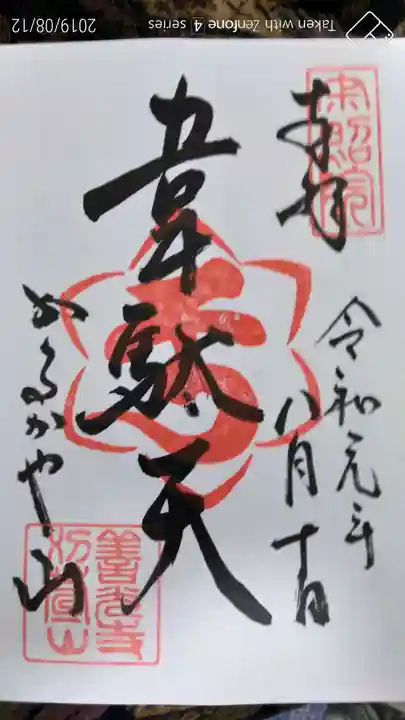 Taken with Zenfone 4 series
2019/08/12
奉拝
寂照院
令和元年
八月十日
韋駄天
かるかや山
善光寺
苅萱山